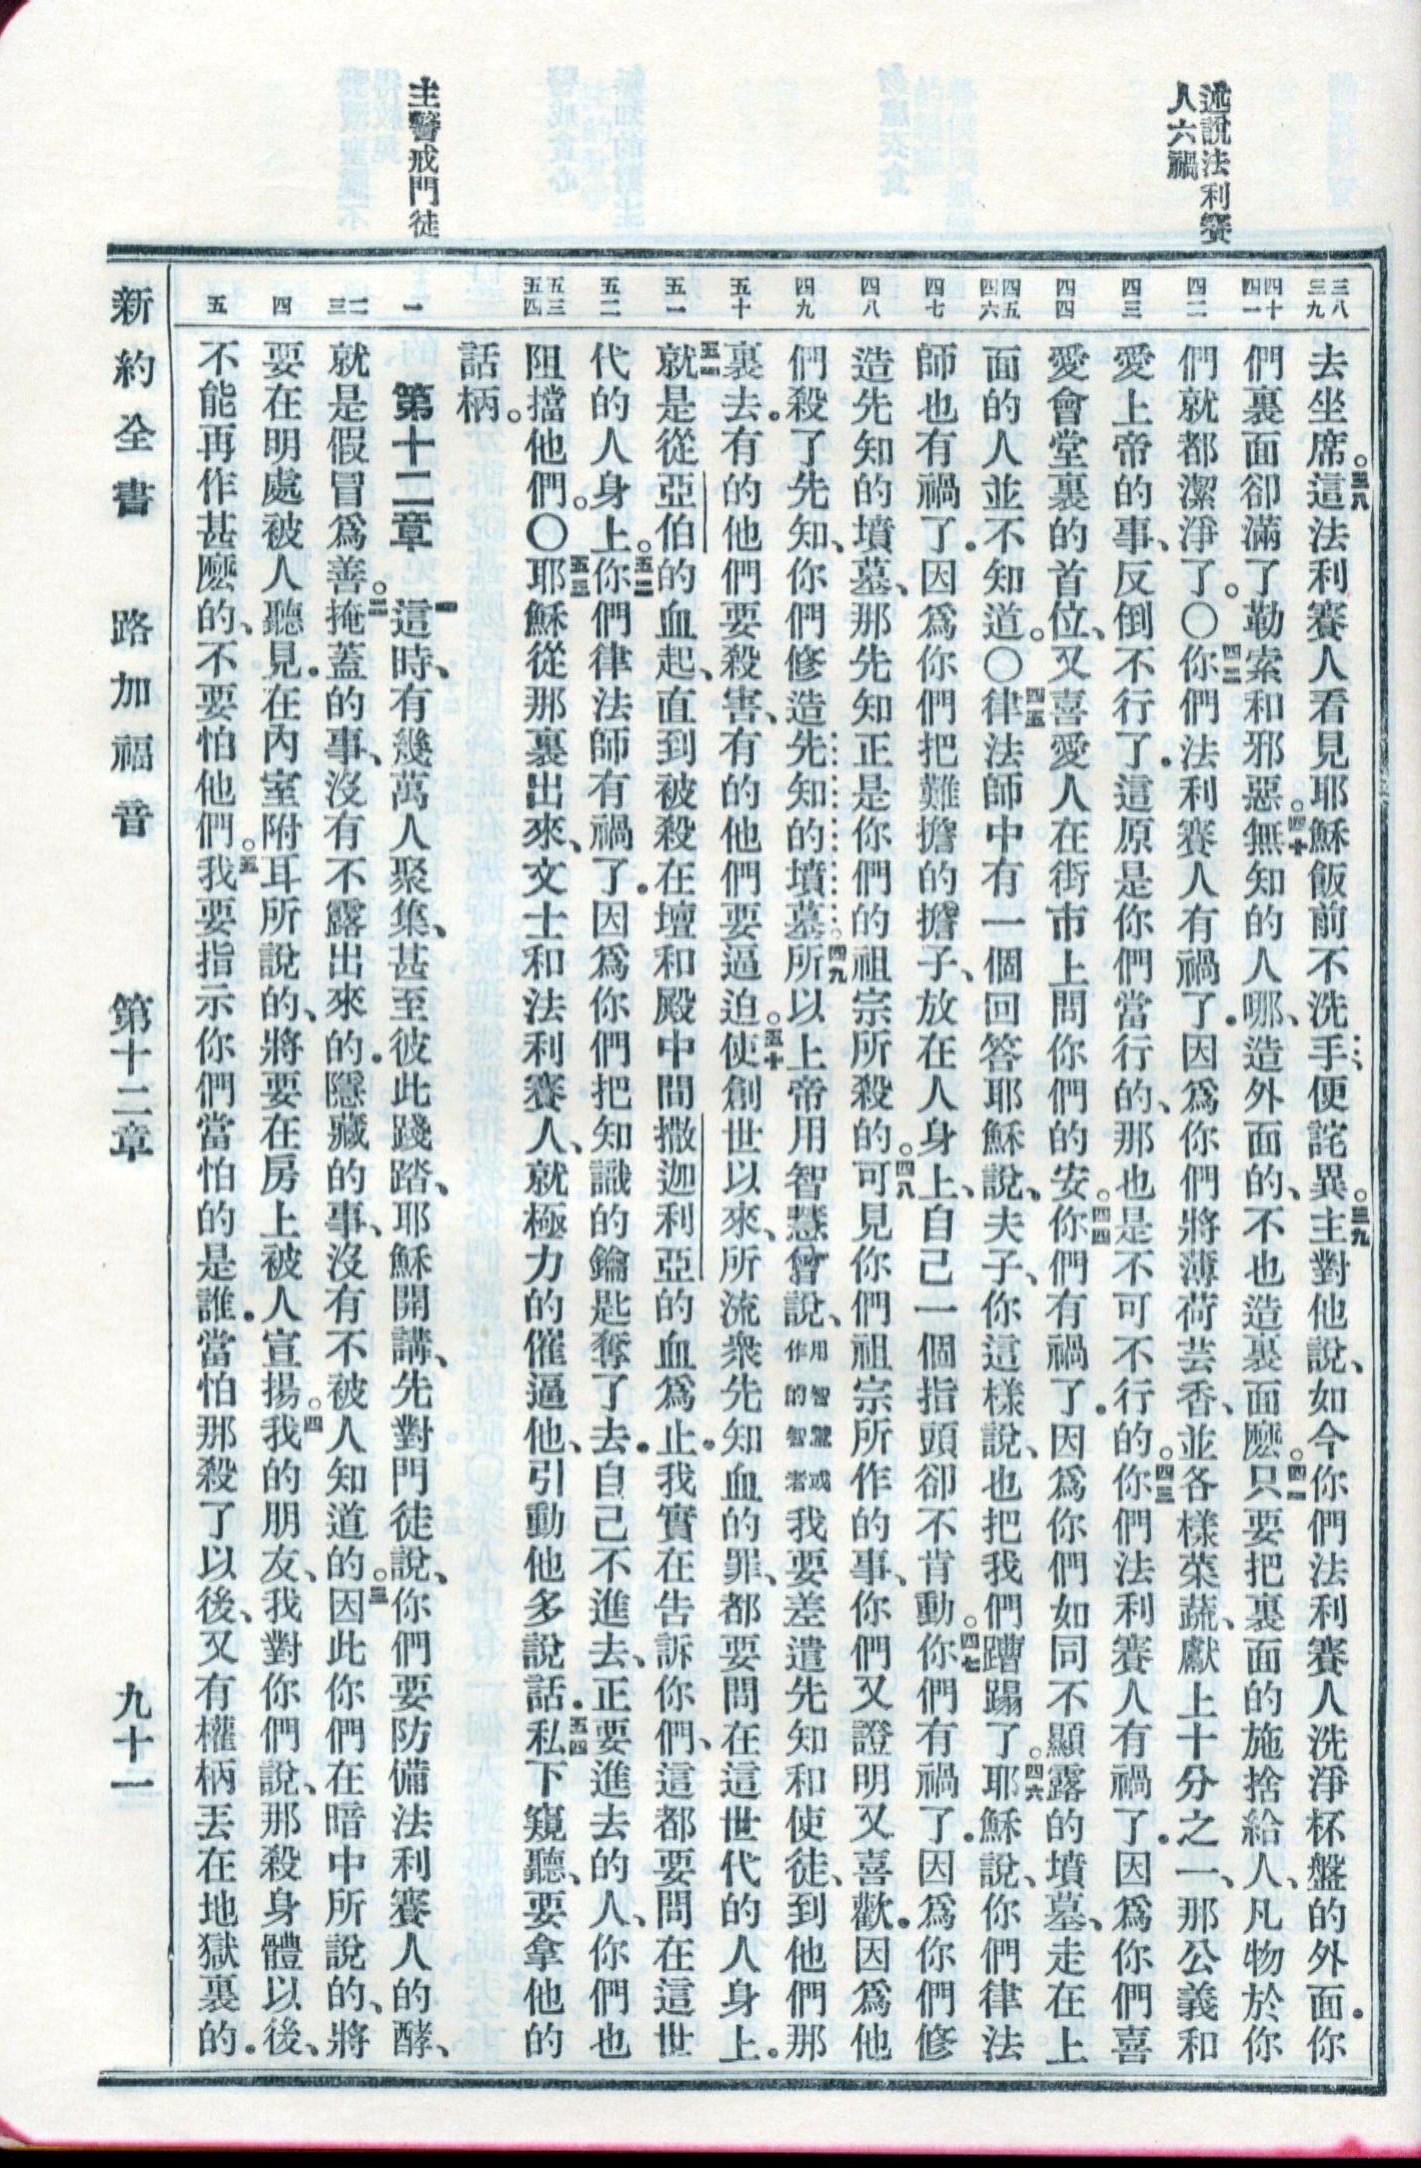 述說法利賽
人六禍
主警戒門徒
三八
三九
四十
四一
四二
四三
四四
四五
四六
四七
四八
四九
五十
五一
五二
五三
五四
一
二
三
四
五
去坐席。三八這法利賽人看見耶穌飯前不洗手、便詫異。三九主對他說、如今你們法利賽人洗淨杯盤的外面．你
們裏面卻滿了勒索和邪惡。四十無知的人哪．造外面的、不也造裏面麼。四一只要把裏面的施捨給人、凡物於你
們就都潔淨了。〇四二你們法利賽人有禍了．因爲你們將薄荷芸香、並各樣菜蔬、獻上十分之一、那公義和
愛上帝的事、反倒不行了．這原是你們當行的、那也是不可不行的。四三你們法利賽人有禍了．因爲你們喜
愛會堂裏的首位、又喜愛人在街市上問你們的安。四四你們有禍了．因爲你們如同不顯露的墳墓、走在上
面的人並不知道。〇四五律法師中有一個回答耶穌說、夫子、你這樣說、也把我們蹧蹋了。四六耶穌說、你們律法
師也有禍了．因爲你們把難擔的擔子、放在人身上、自己一個指頭卻不肯動。四七你們有禍了．因爲你們修
造先知的墳墓、那先知正是你們的祖宗所殺的。四八可見你們祖宗所作的事、你們又證明又喜歡．因爲他
們殺了先知、你們修造先知的墳墓。四九所以上帝用智慧曾說、用智慧或作的智者我要差遣先知和使徒、到他們那
裏去．有的他們要殺害、有的他們要逼迫。五十使創世以來、所流衆先知血的罪、都要問在這世代的人身上．
五一就是從亞伯的血起、直到被殺在壇和殿中間撒迦利亞的血爲止．我實在告訴你們、這都要問在這世
代的人身上。五二你們律法師有禍了．因爲你們把知識的鑰匙奪了去．自己不進去、正要進去的人、你們也
阻擋他們。〇五三耶穌從那裏出來、文士和法利賽人、就極力的催逼他、引動他多說話．五四私下窺聽、要拿他的
話柄。
第十二章　一這時、有幾萬人聚集、甚至彼此踐踏、耶穌開講、先對門徒說、你們要防備法利賽人的酵、
就是假冒爲善。二掩蓋的事、沒有不露出來的．隱藏的事、沒有不被人知道的。三因此你們在暗中所說的、將
要在明處被人聽見．在內室附耳所說的、將要在房上被人宣揚。四我的朋友、我對你們說、那殺身體以後、
不能再作甚麼的、不要怕他們。五我要指示你們當怕的是誰．當怕那殺了以後、又有權柄丟在地獄裏的．
新約全書　路加福音　第十二章　九十一